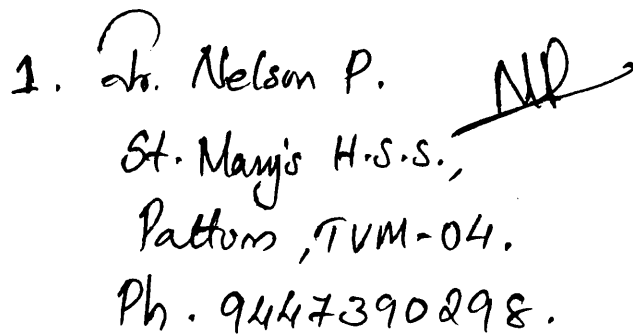 1. Fr. Nelson P.
St. Mary's H.S.S.,
Pattom, TVM-04.
Ph. 9447390298.